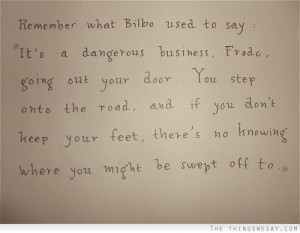 Remember what Bilbo used to say :
"It's a dangerous business, Frodo,
going out your door. You step
onto the road, and if you don't
keep your feet, there's no knowing
where you might be swept off to."
THETHINGSWESAY.COM